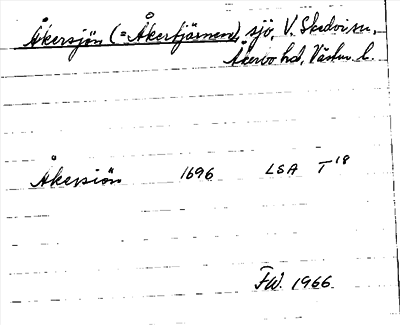 Åkersjön (= Åkertjärnen), sjö, V. Skedvi sn,
Åkerbo hd, Västm. l.
Åkersiön 1696 LSA T 18
F.W. 1966.